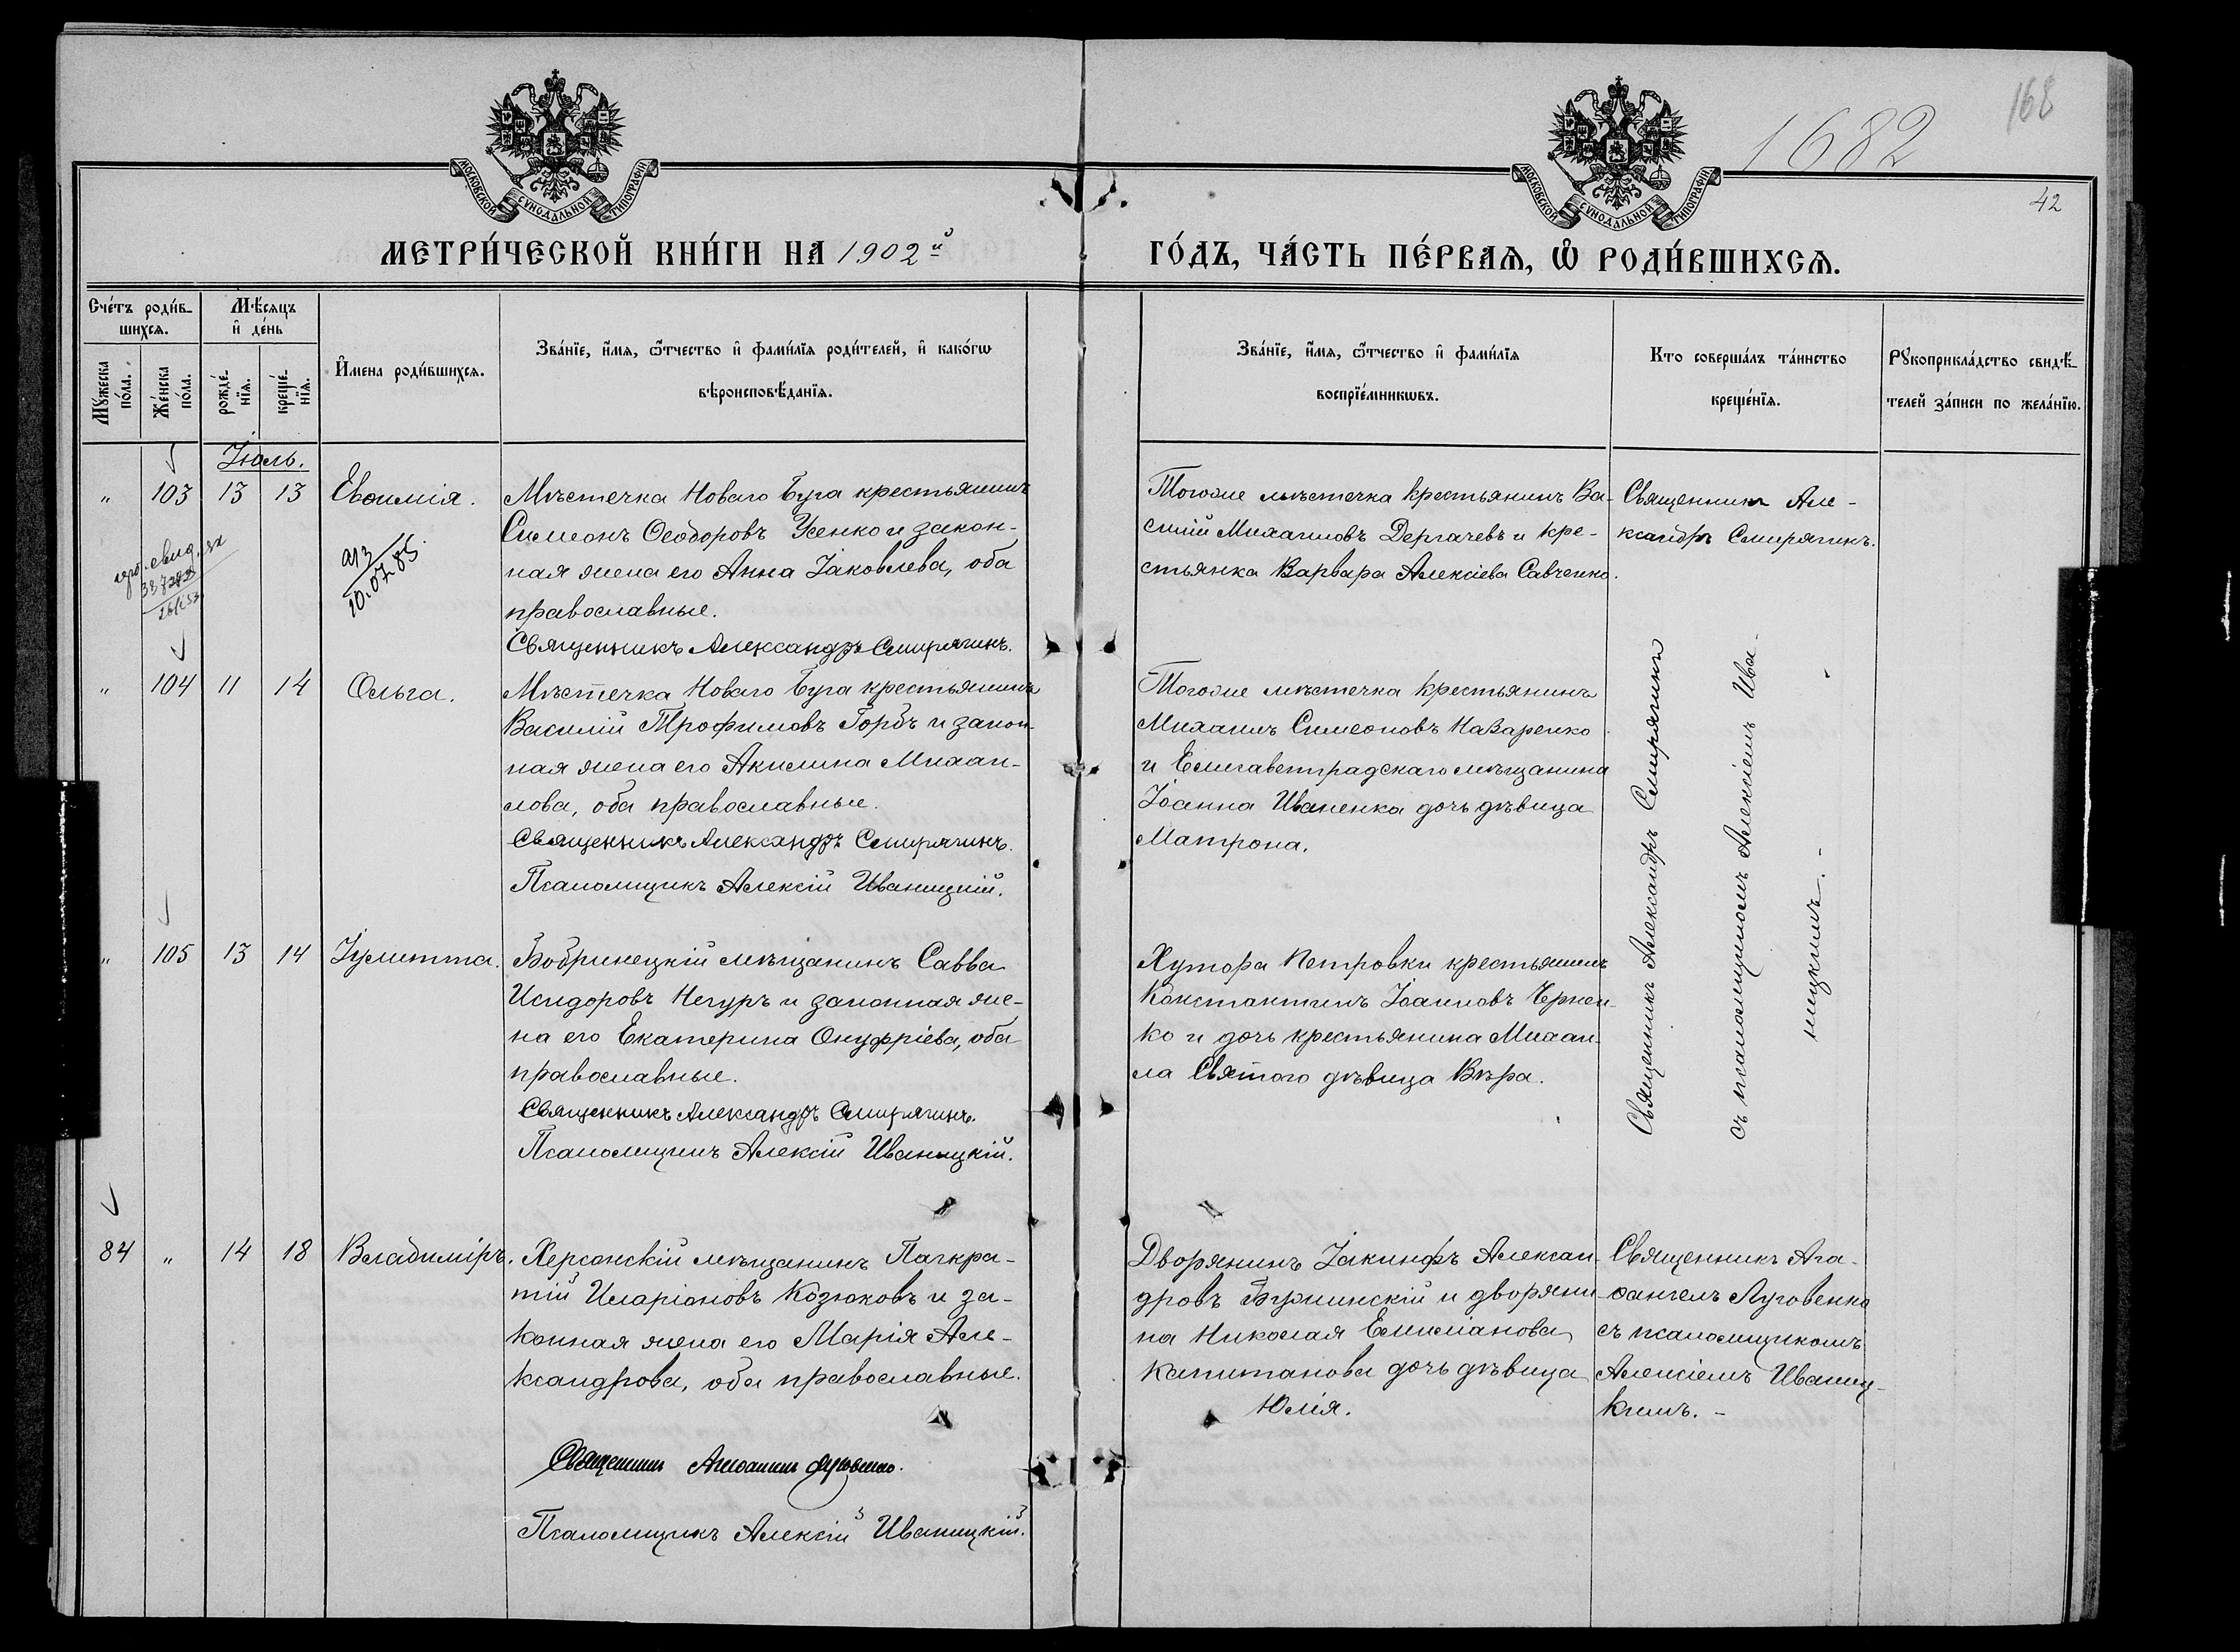 1682
168
42
МОСКОВСКОЙ СѴНОДАЛЬНОЙ ТИПОГРАФІИ
МОСКОВСКОЙ СѴНОДАЛЬНОЙ ТИПОГРАФІИ
МЕТРИ́ЧЕСКОЙ КНИ́ГИ НА 1902й
ГО́ДЪ, ЧА́СТЬ ПЕ́РВАѦ, Ѽ РОДИ́ВШИХСѦ.
Сче́тъ роди́в-
шихсѧ.
Мѣ́сѧцъ
и҆ де́нь
Мꙋ́жеска по́ла.
Же́нска по́ла.
рожде́-
нїѧ.
креще́-
нїѧ.
И҆мена роди́вшихсѧ.
Зва́нїе, и҆́мѧ, ѻ҆́тчество и҆ фами́лїѧ роди́телей, и҆ како́гѡ
вѣроисповѣ́данїѧ.
Зва́нїе, и҆́мѧ, ѻ҆́тчество и҆ фами́лїѧ
воспрїе́мникѡвъ.
Кто соверша́лъ та́инство
креще́нїѧ.
Рꙋкоприкла́дство свидѣ́-
телей за́писи по жела́нїю.
Іюль.
" 103 13 13 Евѳимія.
Мѣстечка Новаго Буга крестьянинъ
Симеонъ Ѳеодоровъ Усенко и закон-
ная жена его Анна Іаковлева, оба
православные.
Священникъ Александръ Смирягинъ.
Тогоже мѣстечка крестьянинъ Ва-
силій Михаиловъ Дергачевъ и кре-
стьянка Варвара Алексіева Савченко.
Священникъ Але-
ксандръ Смирягинъ.
10.07.85.
" 104 11 14 Ольга.
Мѣстечка Новаго Буга крестьянинъ
Василій Трофимовъ Горбъ и закон-
ная жена его Акилина Михаи-
лова, оба православные.
Священникъ Александръ Смирягинъ.
Псаломщикъ Алексій Иваницкій.
Тогоже мѣстечка крестьянинъ
Михаилъ Симеоновъ Назаренко
и Елисаветградскаго мѣщанина
Іоанна Иваненка дочь дѣвица
Матрона.
Священникъ Александръ Смирягинъ
съ псаломщикомъ Алексіемъ Ива-
ницкимъ.-
" 105 13 14 Іулитта.
Бобринецкій мѣщанинъ Савва
Исидоровъ Негуръ и законная же-
на его Екатерина Онуфріева, оба
православные.
Священникъ Александръ Смирягинъ.
Псаломщикъ Алексій Иваницкій.
Хутора Петровки крестьянинъ
Константинъ Іоанновъ Чернен-
ко и дочь крестьянина Михаи-
ла Святого дѣвица Вѣра.
84 " 14 18 Владиміръ.
Херсонскій мѣщанинъ Панкра-
тій Иларіоновъ Козюковъ и за-
конная жена его Марія Але-
ксандрова, оба православные.
Священникъ Агаѳангелъ Луговенко.
Псаломщикъ Алексій Иваницкій.
Дворянинъ Іакинфъ Алексан-
дровъ Бужинскій и дворяни-
на Николая Емиліанова
Капитанова дочь дѣвица
Юлія.
Священникъ Ага-
ѳангелъ Луговенко
съ псаломщикомъ
Алексіемъ Иваниц-
кимъ. -